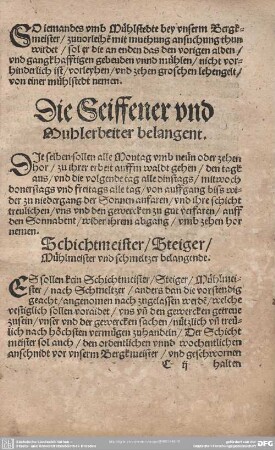 SO iemandes vmb Mühlstedte bey vnserm Bergk-
meister/ zuuorleyhē mit muthung ansuchung thun
wirdet/ sol er die an enden das den vorigen alden/
vnd gangkhafftigen gebeuden vnnd mühlen/ nicht vor-
hinderlich ist/ vorleyhen/ vnd zehen groschen lehengelt/
von einer mühlstedt nemen.
Die Seiffener vnd
Muhlerbeiter belangent.
DIe selben sollen alle Montag vmb neün oder zehen
Vhor/ zu ihrer erbeit auffm walde gehen/ den tagk
aus/ vnd die volgende tag alle dinstags/ mitwoch
donerstags vnd freitags alle tag/ von auffgang biss wi-
der zu niedergang der Sonnen anfaren/ vnd ihre schicht
treulichen/ vns vnd den gewercken zu gut verfaren/ auff
den Sonnabent/ wider ihren abgang/ vmb zehen hor
nemen.
Schichtmeister/ Steiger/
Mühlmeister vnd schmeltzer belangende.
ES sollen kein Schichtmeister/ Steiger/ Mühlmei-
ster/ nach Schmeltzer/ anders dan die vorstendig
geacht/ angenomen nach zugelassen werdē/ welche
vestiglich sollen voraidet/ vns vñ den gewercken getreue
zusein/ vnser vnd der gewercken sachen/ nützlich vñ treu-
lich nach höchsten vermügen zuhandeln/ Der Schicht
meister sol auch/ den ordentlichen vnnd wochentlichen
anschnidt vor vnserm Bergkmeister/ vnd geschwornen
C ij halten